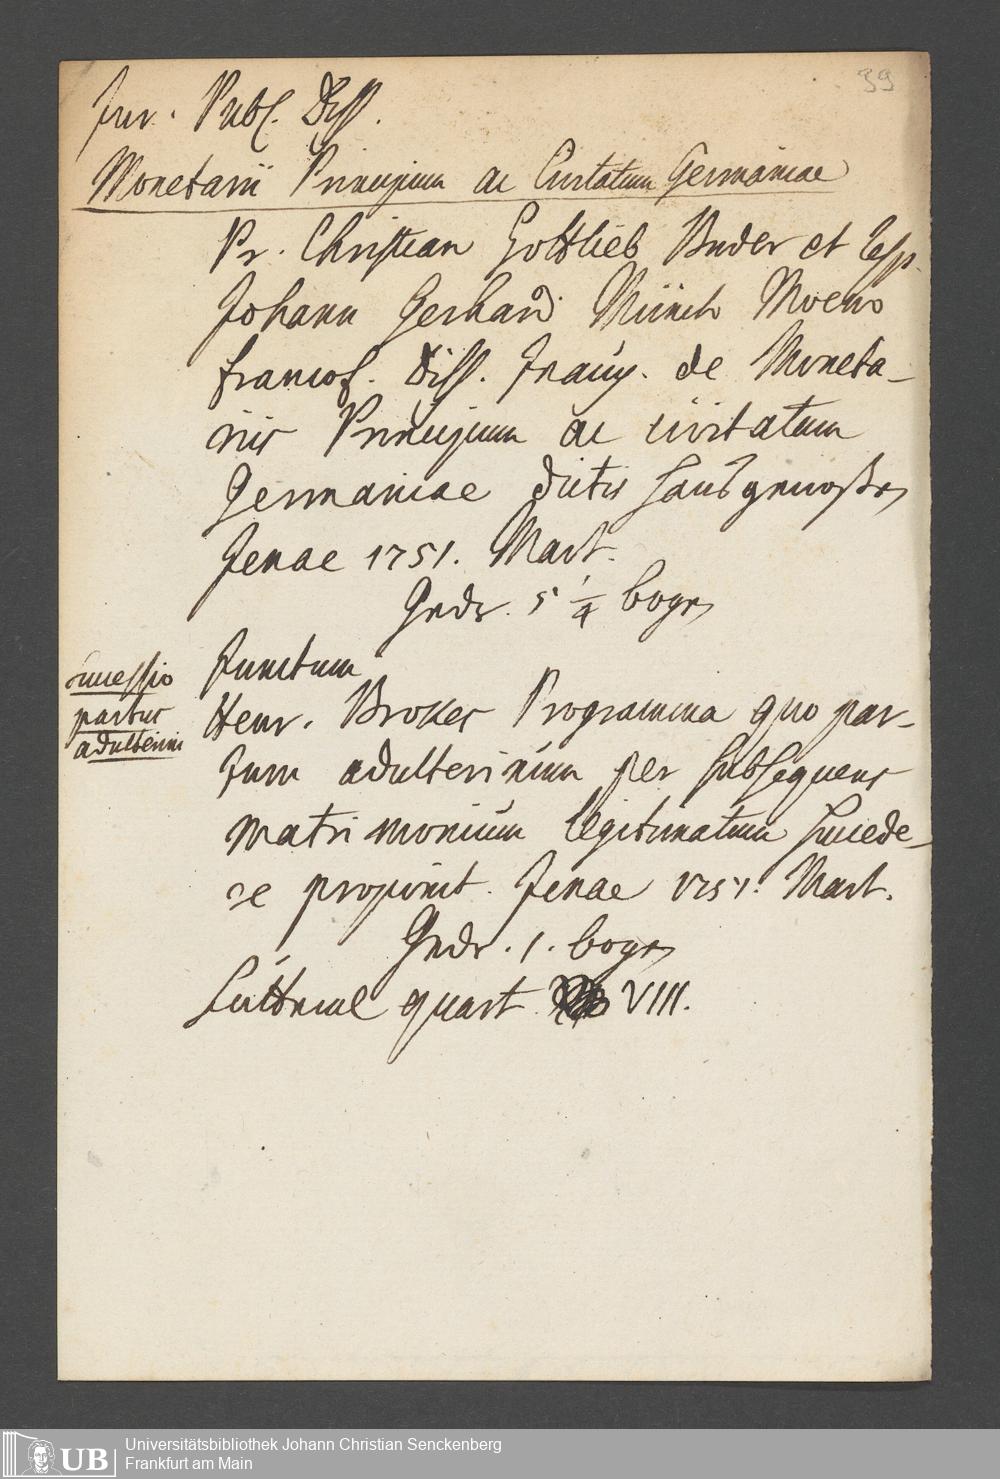 39
Jur. Publ. Diss.
Monetarii Principum ac Civitatum Germaniae
Pr. Christian Gottlieb Buder et Resp.
Johann Gerhard Münch Moeno
francof. Diss. Inaug. de Moneta-
riis Principum ac civitatum
Germaniae dictis Hausgenoßen
Jenae 1751. Mart.
Gedr. 5 1/4 bogen
Junctum
successio
partus
adulterini
Henr. Brokes Programma quo par-
tum adulterinum per subsequens
matrimonium legitimatum succede-
re proponit. Jenae 1751. Mart.
Gedr. 1. bogen
quart VIII.
UB
Universitätsbibliothek Johann Christian Senckenberg
Frankfurt am Main